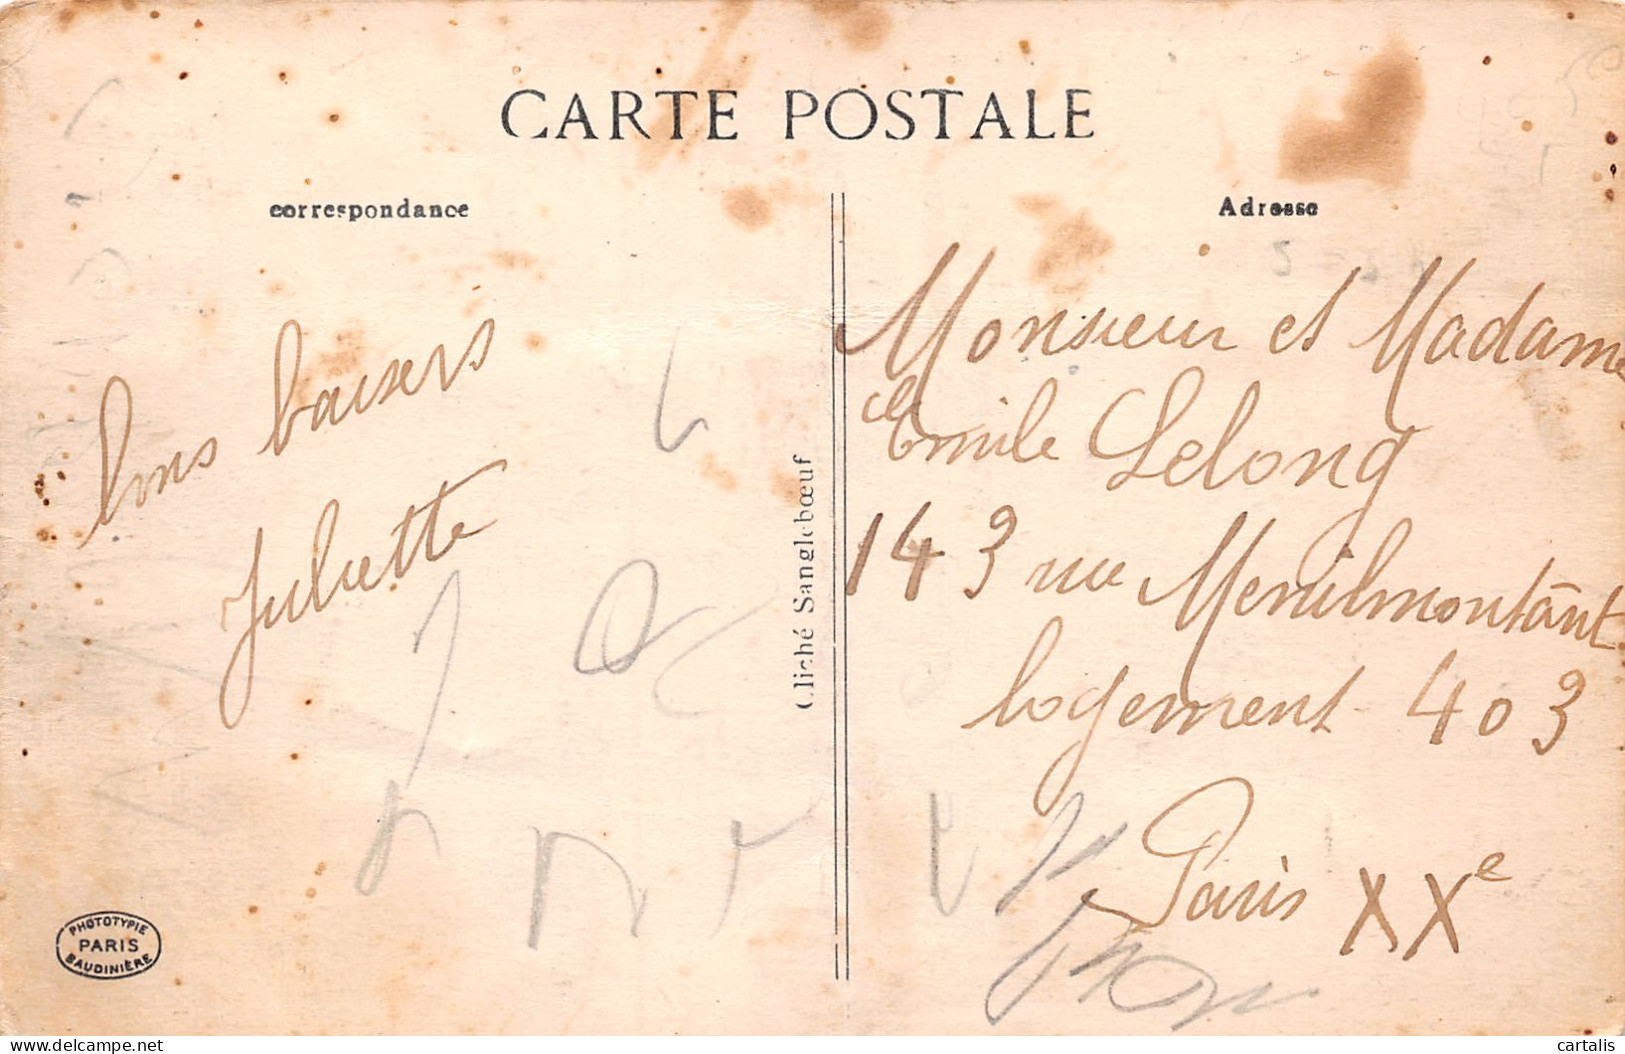 CARTE POSTALE
correspondance
Adresse
bons baisers
Juliette
Monsieur et Madame
Emile Lelong
143 rue Menilmontant
logement 403
Paris XXe
Cliché Sanglebœuf
PHOTOTYPIE
PARIS
BAUDINIÈRE
delcampe.net
cartalis